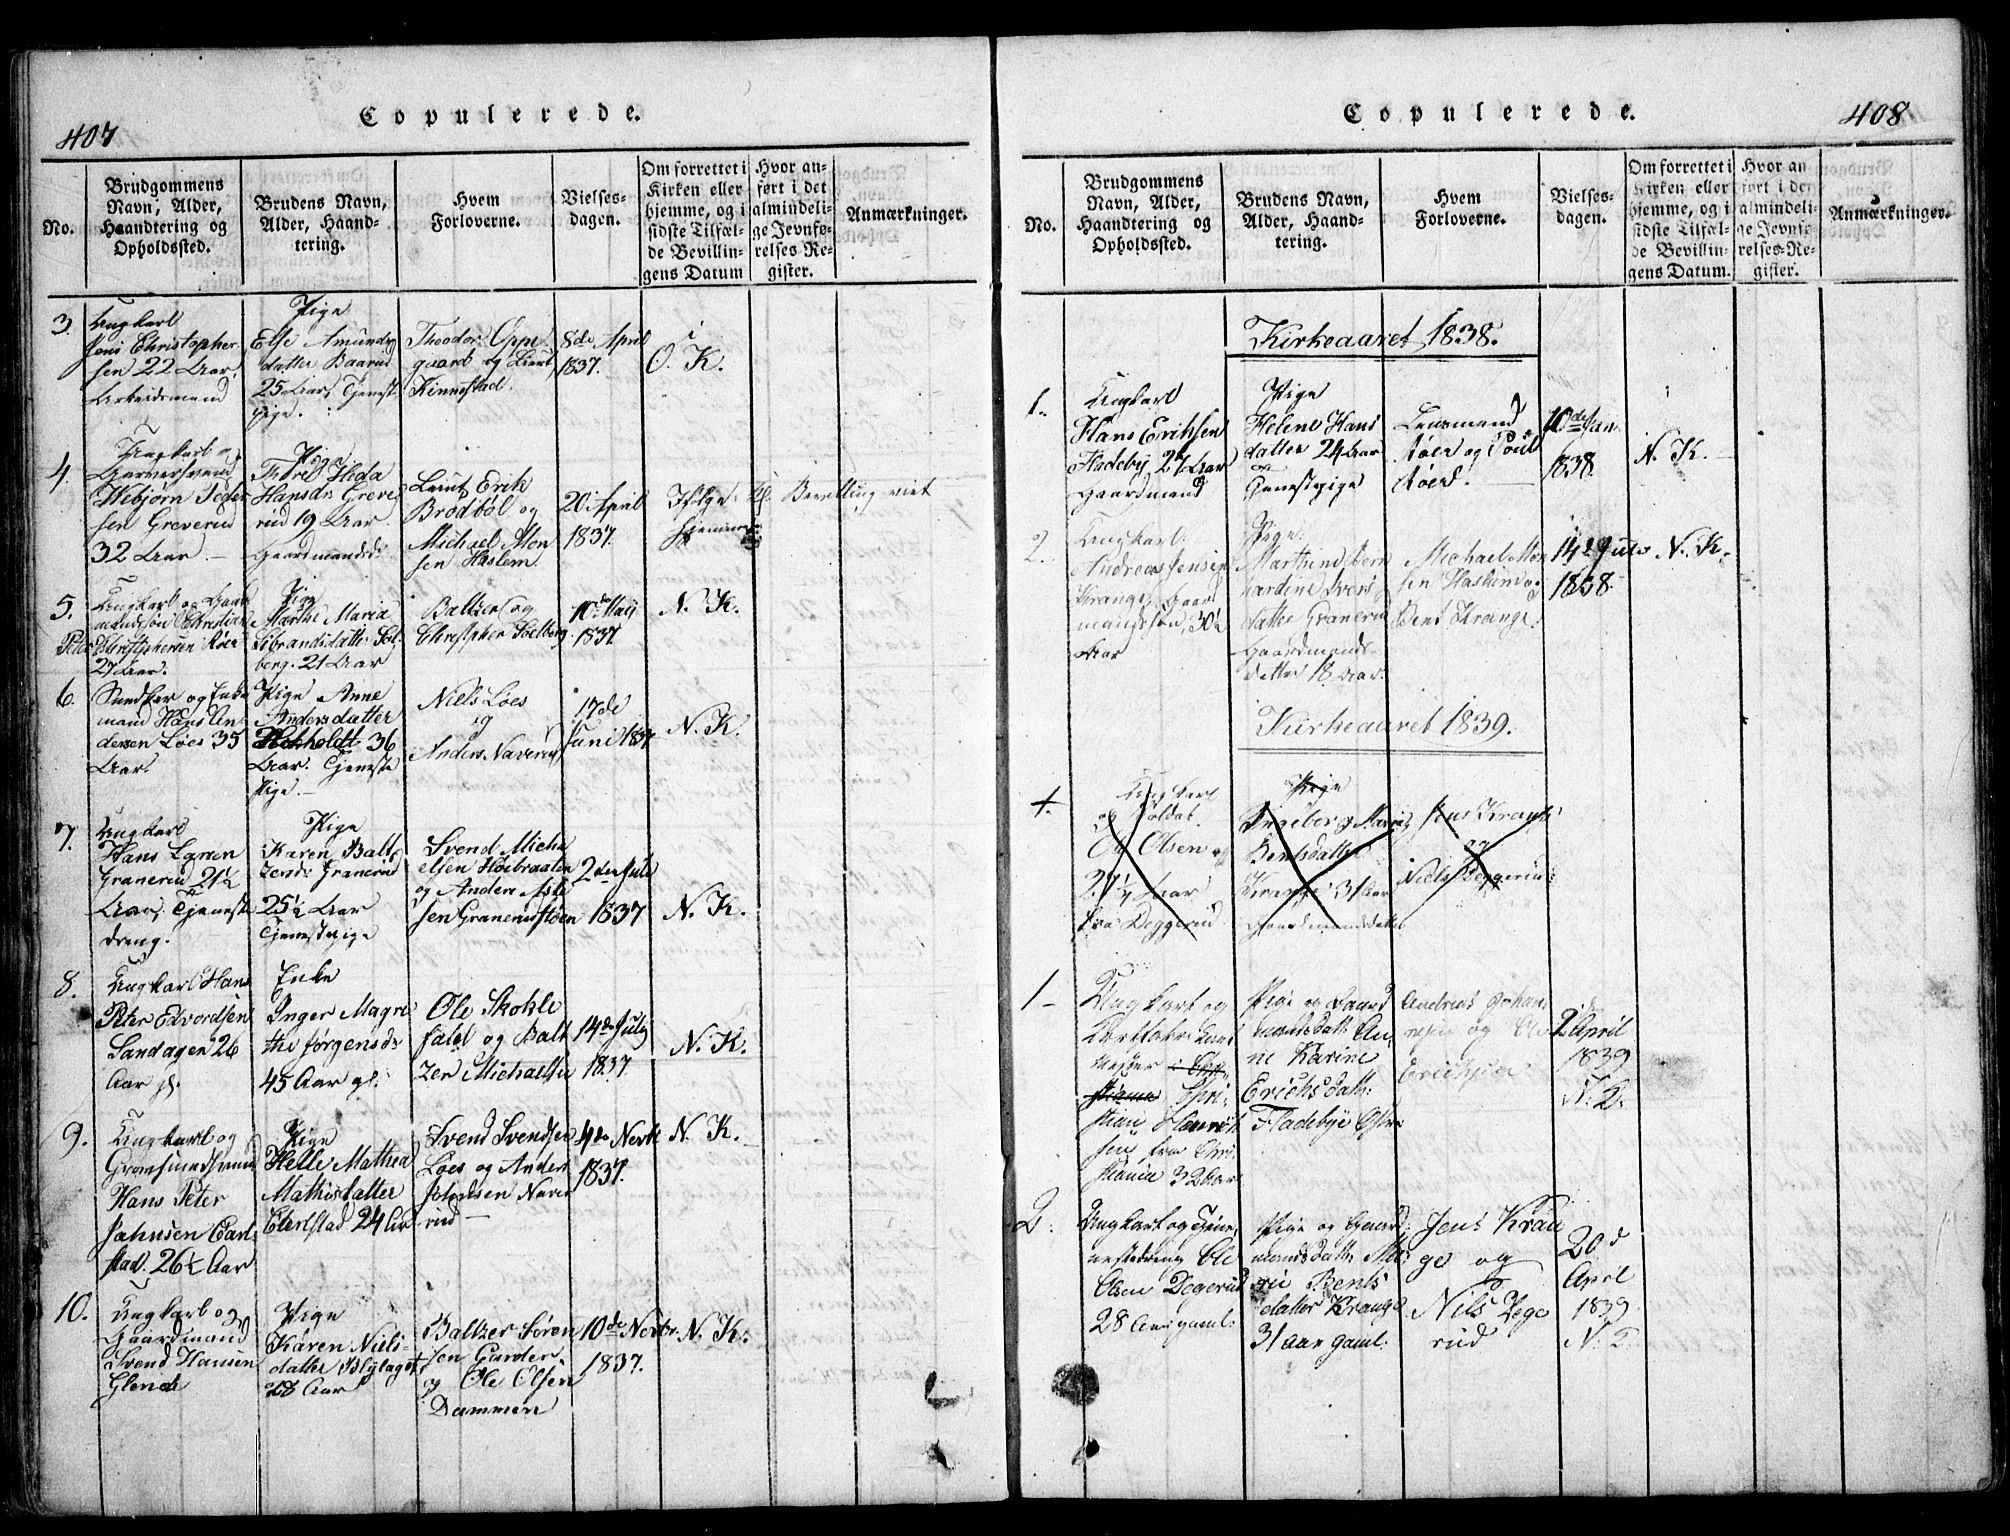 407
Copulerede.
No.
Brudgommens
Navn, Alder,
Haandtering og
Opholdssted.
Brudens Navn,
Alder, Haand-
tering.
Hvem
Forloverne.
Vielses-
dagen.
Om forrettet i
Kirken eller
hjemme, og i
sidste Tilfæl-
de Bevillin-
gens Datum
Hvor an-
ført i det
almindeli-
ge Jevnfø-
relses-Re-
gister.
Anmærkninger.
3.
Ungkarl
Jens Christopher
sen 22 Aar
Arbeidsmand
Pige
Else Amunds
datter Baarud
25 Aar, Tjenest
pige.
Theodor Oppe
gaard og Lieut
Kinnestad.
8de April
1837.
i
O. K.
4.
Ungkarl og
Garversvend
Peder
sen Greverud
32 Aar
Pige
Hansdr Greve
rud 19 Aar
Gaardmandsdr
Lieut Erik
Brodbøl og
Michael Mon
sen Haslem.
20 April
1837.
Hjemme
Bevilling viet
5.
Ungkarl og Gaard
mandssøn Christian
Peter Christophersen Røer
27 Aar.
Pige
Marthe Maria
Sibrandsdatter Sol
berg. 21 Aar
Baltzer og
Christopher Soelberg
10de Maij
1837
N. K.
6.
Snedker og Enke
mand Hans An
dersen Løes 35
Aar
Pige Anne
Andersdatter
36
Aar. Tjeneste
Pige.
Niels Løes
og
Anders Naverud
17de
Juni 1837
N. K.
7.
Ungkarl
Hans Larsen
Granerud 21½
Aar. Tjeneste
dreng.
Pige
Karen Balt
zersdr Granerud
25½ Aar
Tjenestepige
Svend Micha
elsen Høibraaten
og Anders Asle
sen Granerudstøen
2den Juli
1837
N. K.
8.
Ungkarl Hans
Peter Edvardsen
Sandagen 26
Aar gl.
Enke
Inger Magre
the Jørgensdr
45 Aar gl.
Ole Skokle
fald og Balt
zer Michaelsen
14de July
1837
N. K.
9.
Ungkarl og
Hans Peter
Jahnsen Carl
stad. 26½ Aar
Pige
Helle Mathea
Mathisdatter
Carlstad 24 Aar
Svend Svendsen
Løes og Anders
Johnsen Naver
rud
4de Novbr
1837.
N. K.
10.
Ungkarl og
Gaardmand
Svend Hansen
Glende
Pige
Karen Niels-
datter Bylaget
28 Aar
Baltzer Søren
sen Garder
og Ole Olsen
Dammen
10de Novbr
1837.
N. K.
408
Copulerede.
No.
Brudgommens
Navn, Alder,
Haandtering og
Opholdssted.
Brudens Navn,
Alder, Haand-
tering.
Hvem
Forloverne.
Vielses-
dagen.
Om forrettet i
Kirken eller
hjemme, og i
sidste Tilfæl-
de Bevillin-
gens Datum.
Hvor an
ført i det
almindeli-
ge Jevnfø-
relses-Re-
gister.
Anmærkninger.
Kirkeaaret 1838.
1.
Ungkarl
Hans Eriksen
Fladeby 27 Aar
Gaardmand
Pige
Helene Hans
datter 24 Aar
Tjenestepige
Lensmand
Røer og Poul
Røer.
10de Jan.
1838.
N. K.
2.
Ungkarl
Andreas Jensen
Krange, Gaard
mandssøn, 30½
Aar
Pige
Marthine Bern
hardine Ivers
datter Granerud
Gaardmands
datter 18 Aar
Michael Mon
sen Haslum og
Bent Krange.
14de July
1838
N. K.
Kirkeaaret 1839.
1.
Ungkarl
og Soldat
Ole Olsen
27¼ Aar
fra Deggerud
Pige
Ingeborg Marie
Bentsdatter
Krange 31 Aar
Gaardmandsdatter
Jens Krange
og
Niels Deggerud
1
Ungkarl og
Chri-
stian Henrik
sen fra Chri
stiania 32 Aar
Pige og Gaard
mandsdatt: An
ne Karine
Erichsdatt:
Fladebye
Andreas Johan
nesen og Ole
Erichsen
2 April
1839
N. K.
2.
Ungkarl og Tjene
nestedreng Ole
Olsen Degerud
28 Aar gaml:
Pige og Gaard
mandsdatt: Ma
rie Bents
datter Krange
31 aar gaml:
Jens Kran
ge og
Nils Dege
rud
20de
April
1839
N. K.